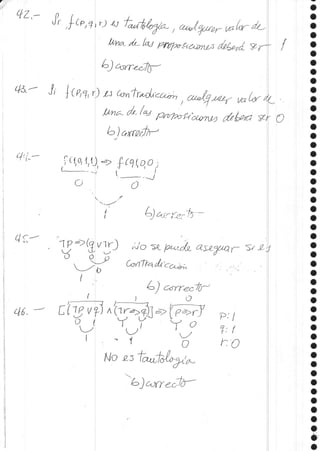 42.- Si f(p,q,r) es tautología, cualquier valor de
una de las proposiciones deberá ser 1
b) correcto
43.- Si f(p,q,r) es contradicción, cualquier valor de
una de las proposiciones deberá ser 0
b) correcto
f(q,1,1) => f(q,0,0)
0 0
1 b) correcto
45.- ¬p=>(q∨r) No se puede asegurar si es
0 0 0 contradicción
0
1 b) correcto
1 1 0
46.- [(¬p∨q)∧(¬r=>q)]=>(p=>r) p:1
0 1 1 1 1 0 q:1
1 1 0 r:0
No es tautología
b) correcto